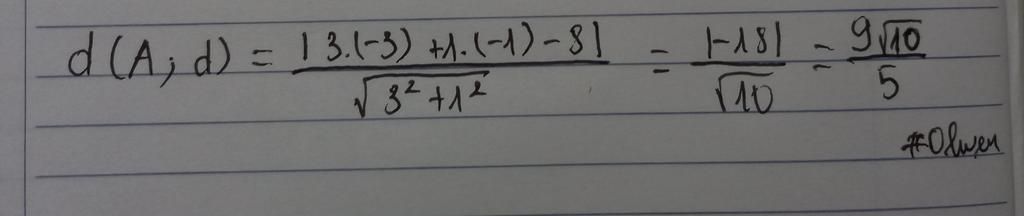 d(A; d) = |3.(-3) + 1.(-1) - 8| / √(3² + 1²) = |-18| / √10 = 9√10 / 5
#Olwen